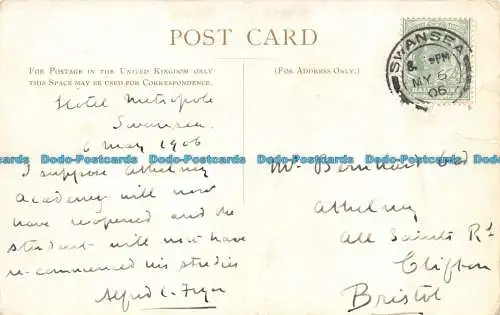 POST CARD
FOR POSTAGE IN THE UNITED KINGDOM ONLY
THIS SPACE MAY BE USED FOR CORRESPONDENCE.
(FOR ADDRESS ONLY.)
SWANSEA
9PM
MY 6
06
Hotel Metropole
Swansea
6 May 1906
I suppose Athelney
Academy will now
have reopened and the
student will now have
re-commenced his studies
Alfred C. Fryer
Mr. Bernhard
Athelney
All Saints Rd
Clifton
Bristol
Dodo-Postcards Dodo-Postcards Dodo-Postcards Dodo-Postcards
Dodo-Postcards Dodo-Postcards Dodo-Postcards Dodo-Postcards